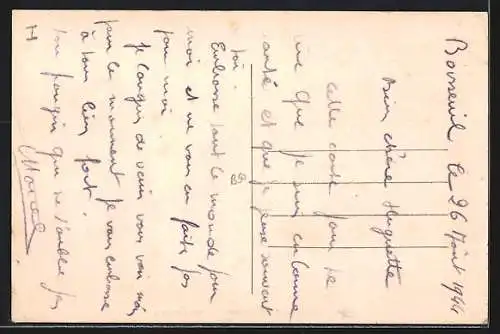 Boisseuil le 26 Août 1944
Bien chère Huguette
cette carte pour te
dire que je suis en bonne
santé et que je pense souvent
toi.
Embrasse tout le monde pour
moi et ne vous en faites pas
pour moi
Je languis de venir vous voir mais
pour le moment je vous embrasse
à tous bien fort.
ton frangin qui ne t'oublie pas
Marcel